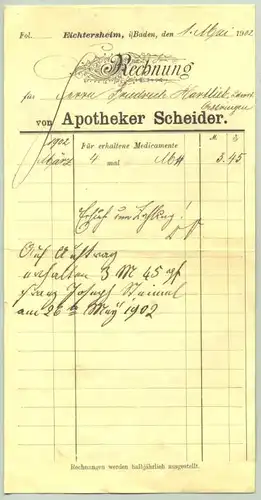 Fol. Eichtersheim, i/Baden, den 1. Mai 1902
Rechnung
für Herrn Friedrich
von Apotheker Scheider.
1902 Für erhaltene Medicamente M. ₰
März 4 mal 3.45
Auf Auftrag
erhalten 3 M 45 pf
Franz Joseph
am 26 May 1902
Rechnungen werden halbjährlich ausgestellt.